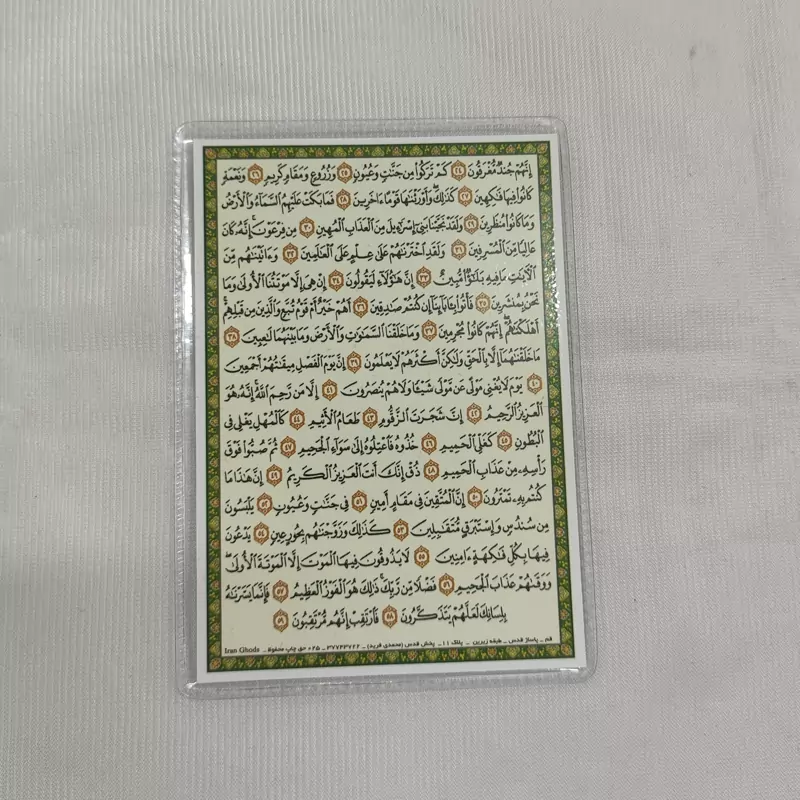 إِنَّهُمْ جُندٌ مُّغْرَقُونَ ٢٤ كَمْ تَرَكُوا مِن جَنَّٰتٍ وَعُيُونٍ ٢٥ وَزُرُوعٍ وَمَقَامٍ كَرِيمٍ ٢٦ وَنَعْمَةٍ
كَانُوا فِيهَا فَٰكِهِينَ ٢٧ كَذَٰلِكَ وَأَوْرَثْنَٰهَا قَوْمًا ءَاخَرِينَ ٢٨ فَمَا بَكَتْ عَلَيْهِمُ السَّمَاءُ وَالْأَرْضُ
وَمَا كَانُوا مُنظَرِينَ ٢٩ وَلَقَدْ نَجَّيْنَا بَنِي إِسْرَٰءِيلَ مِنَ الْعَذَابِ الْمُهِينِ ٣٠ مِن فِرْعَوْنَ إِنَّهُ كَانَ
عَالِيًا مِّنَ الْمُسْرِفِينَ ٣١ وَلَقَدِ اخْتَرْنَٰهُمْ عَلَىٰ عِلْمٍ عَلَى الْعَالَمِينَ ٣٢ وَءَاتَيْنَٰهُم مِّنَ
الْآيَٰتِ مَا فِيهِ بَلَٰؤٌا مُّبِينٌ ٣٣ إِنَّ هَٰؤُلَاءِ لَيَقُولُونَ ٣٤ إِنْ هِيَ إِلَّا مَوْتَتُنَا الْأُولَىٰ وَمَا
نَحْنُ بِمُنشَرِينَ ٣٥ فَأْتُوا بِـَٔابَائِنَا إِن كُنتُمْ صَٰدِقِينَ ٣٦ أَهُمْ خَيْرٌ أَمْ قَوْمُ تُبَّعٍ وَالَّذِينَ مِن قَبْلِهِمْ
أَهْلَكْنَٰهُمْ إِنَّهُمْ كَانُوا مُجْرِمِينَ ٣٧ وَمَا خَلَقْنَا السَّمَٰوَٰتِ وَالْأَرْضَ وَمَا بَيْنَهُمَا لَٰعِبِينَ ٣٨
مَا خَلَقْنَٰهُمَا إِلَّا بِالْحَقِّ وَلَٰكِنَّ أَكْثَرَهُمْ لَا يَعْلَمُونَ ٣٩ إِنَّ يَوْمَ الْفَصْلِ مِيقَٰتُهُمْ أَجْمَعِينَ
٤٠ يَوْمَ لَا يُغْنِي مَوْلًى عَن مَّوْلًى شَيْئًا وَلَا هُمْ يُنصَرُونَ ٤١ إِلَّا مَن رَّحِمَ اللَّهُ إِنَّهُ هُوَ
الْعَزِيزُ الرَّحِيمُ ٤٢ إِنَّ شَجَرَتَ الزَّقُّومِ ٤٣ طَعَامُ الْأَثِيمِ ٤٤ كَالْمُهْلِ يَغْلِي فِي
الْبُطُونِ ٤٥ كَغَلْيِ الْحَمِيمِ ٤٦ خُذُوهُ فَاعْتِلُوهُ إِلَىٰ سَوَاءِ الْجَحِيمِ ٤٧ ثُمَّ صُبُّوا فَوْقَ
رَأْسِهِ مِنْ عَذَابِ الْحَمِيمِ ٤٨ ذُقْ إِنَّكَ أَنتَ الْعَزِيزُ الْكَرِيمُ ٤٩ إِنَّ هَٰذَا مَا
كُنتُم بِهِ تَمْتَرُونَ ٥٠ إِنَّ الْمُتَّقِينَ فِي مَقَامٍ أَمِينٍ ٥١ فِي جَنَّٰتٍ وَعُيُونٍ ٥٢ يَلْبَسُونَ
مِن سُندُسٍ وَإِسْتَبْرَقٍ مُّتَقَٰبِلِينَ ٥٣ كَذَٰلِكَ وَزَوَّجْنَٰهُم بِحُورٍ عِينٍ ٥٤ يَدْعُونَ
فِيهَا بِكُلِّ فَٰكِهَةٍ ءَامِنِينَ ٥٥ لَا يَذُوقُونَ فِيهَا الْمَوْتَ إِلَّا الْمَوْتَةَ الْأُولَىٰ
وَوَقَىٰهُمْ عَذَابَ الْجَحِيمِ ٥٦ فَضْلًا مِّن رَّبِّكَ ذَٰلِكَ هُوَ الْفَوْزُ الْعَظِيمُ ٥٧ فَإِنَّمَا يَسَّرْنَٰهُ
بِلِسَانِكَ لَعَلَّهُمْ يَتَذَكَّرُونَ ٥٨ فَارْتَقِبْ إِنَّهُم مُّرْتَقِبُونَ ٥٩
قم _ پاساژ قدس _ طبقه زیرین _ پلاک ١١ _ پخش قدس (محمدی فرید) _ ٣٧٧٤٣٧٢٢ _ ٠٢٥ حق چاپ محفوظ _ Iran Ghods